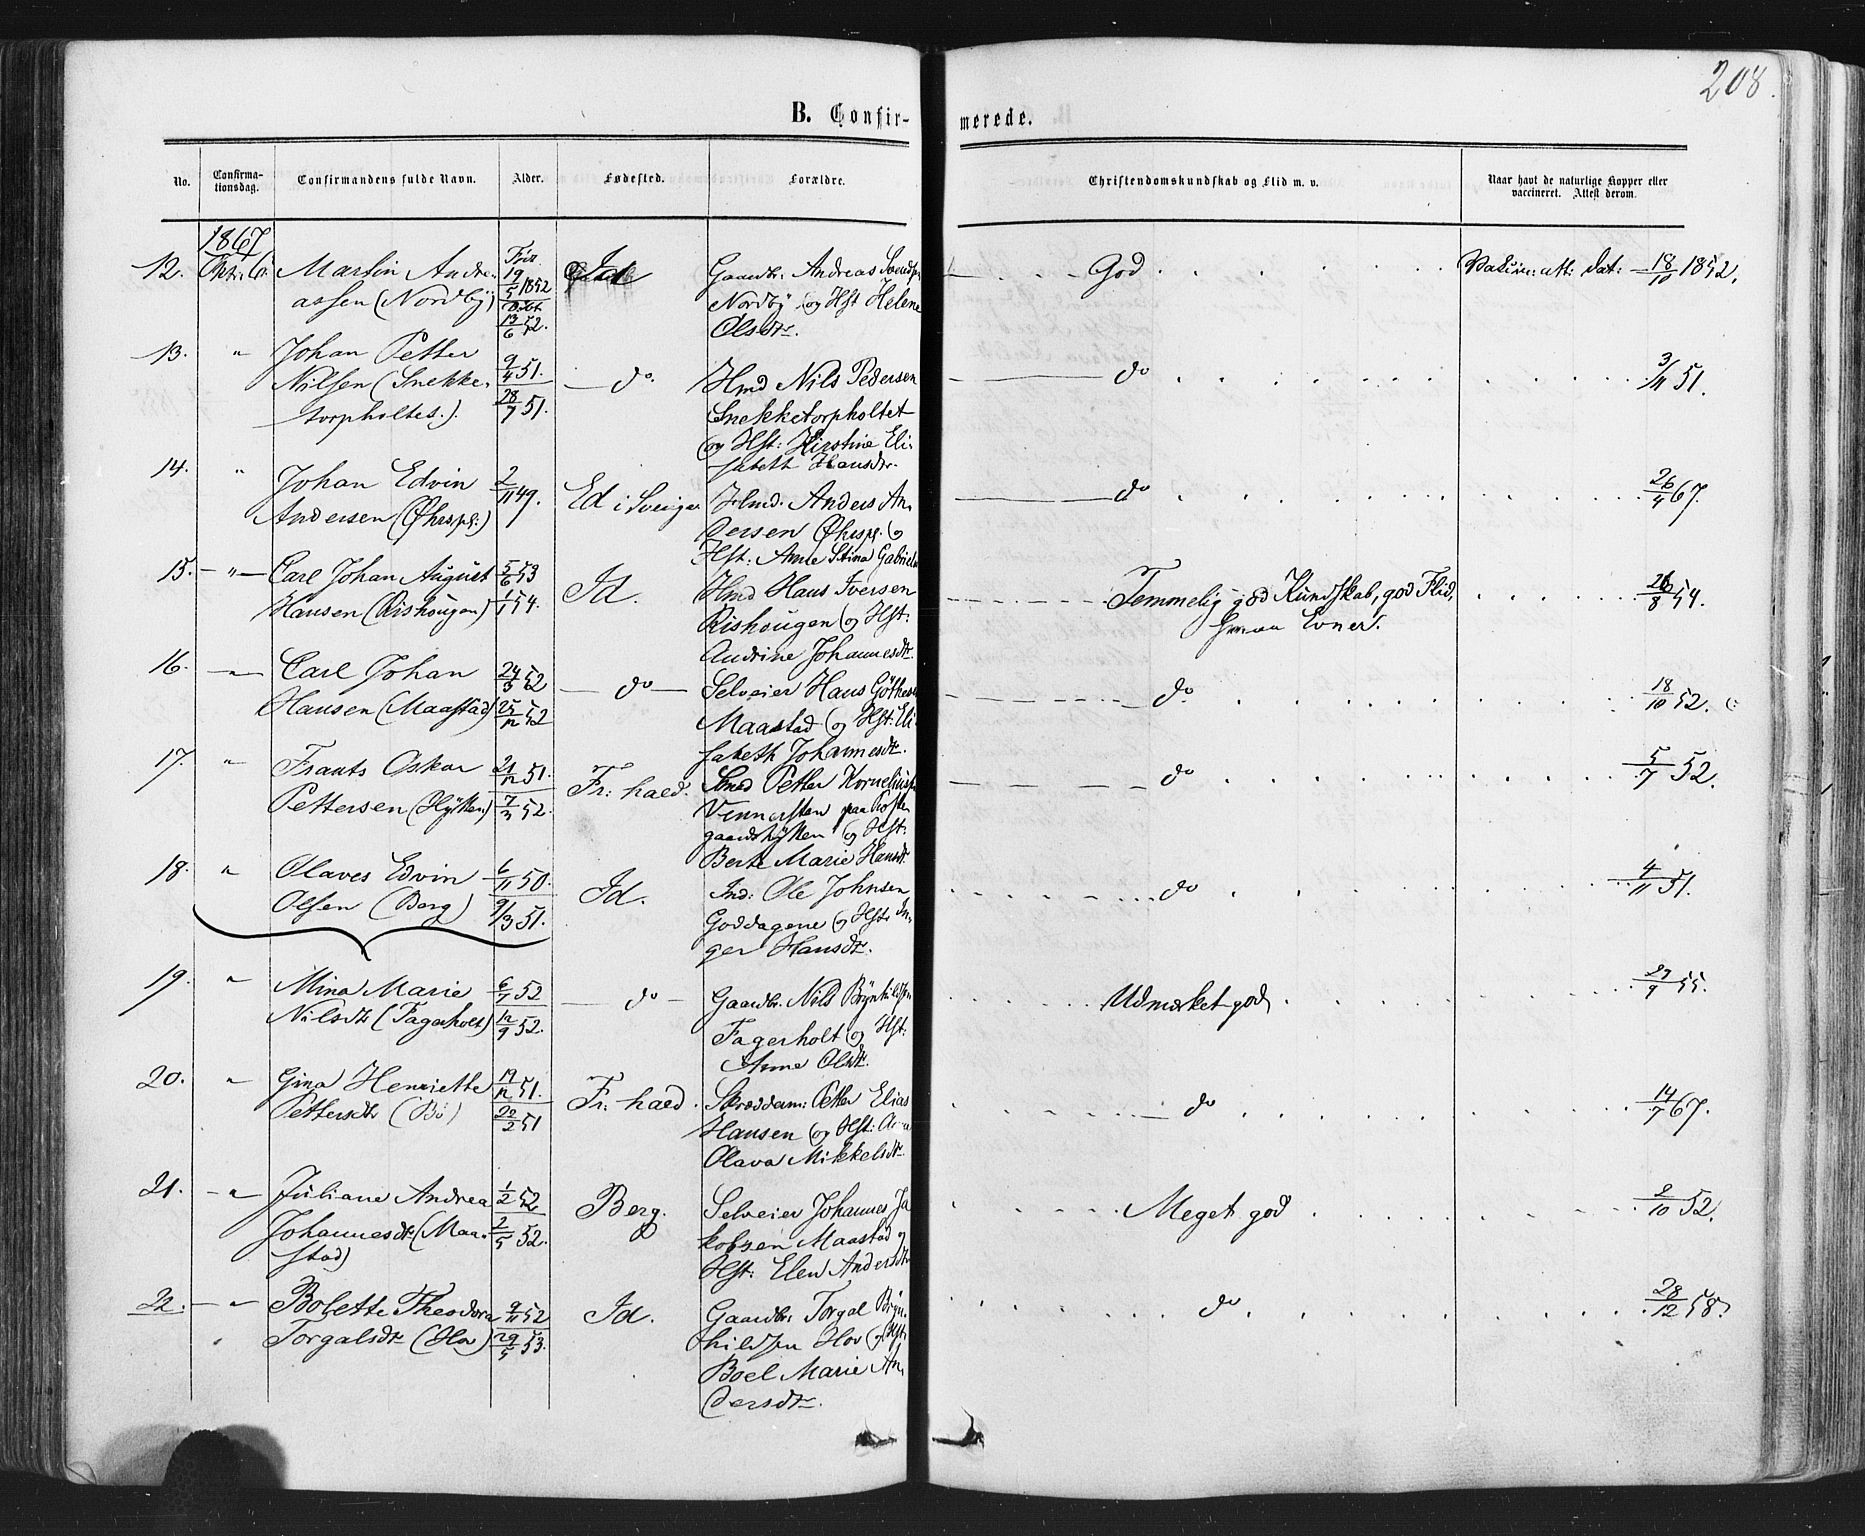 208.
B. Confir-
merede.
No.
Confirma-
tionsdag.
Confirmandens fulde Navn.
Alder.
Fødested.
Forældre.
Christendomskundskab og Flid m. v.
Naar havt de naturlige Kopper eller
vaccineret. Attest derom.
1867
12. Octr: 6. Martin Andre-
assen (Nordby)
19/5 1852
13/6 52.
Id
Gaardbr: Andreas Svends:
Nordby og Hst Helene
Olsdtr.
God
Vaccin: att: dat: 18/10 1852.
13. " Johan Petter
Nilsen (Snekke-
torpholtet.)
9/4 51.
28/7 51.
do.
Hmd Nils Pedersen
Snekketorpholtet
og Hst: Kirstine Eli-
sabeth Hansdtr.
do
3/11 51.
14. " Johan Edvin
Andersen (Øhrspl:)
2/11 49.
Ed i Sverige
Hmd: Anders An-
dersen Øhrspl. og
Hst: Anne Stina Gabriels
do
26/4 67.
15. " Carl Johan August
Hansen (Rishougen)
5/6 53
1/1 54.
Id.
Hmd Hans Iversen
Rishougen og Hst:
Andrine Johannesdtr.
Temmelig god Kundskab, god Flid,
smaa Evner.
26/8 54.
16. " Carl Johan
Hansen (Maastad)
24/3 52
25/12 52
do
Selveier Hans Göthes
Maastad og Hst: Eli
sabeth Johannesdtr.
do
18/10 52.
17. " Frants Oskar
Pettersen (Hytten)
21/12 51.
7/3 52.
Fr: hald.
Smed Petter Kornelius
Vennersten paa
gaardshytten og Hst:
Berte Marie Hansdtr
do
5/7 52.
18. " Olaves Edvin
Olsen (Berg)
6/11 50.
9/3 51.
Id.
Ind: Ole Johnsen
Goddagene og Hst: In-
ger Hansdtr.
do
4/11 51.
19. " Mina Marie
Nilsdtr (Fagerholt)
6/7 52
12/9 52.
do
Gaardbr. Nils Brynhildsen
Fagerholt og Hst:
Anne Olsdtr.
Udmærket god
27/9 55.
20. " Gina Henriette
Pettersdtr (Bö)
51.
22/2 51
Fr: hald.
Skræderm: Petter Elias
Hansen og Hst:
Olava Mikkelsdtr.
do
14/7 67.
21. " Juliane Andrea
Johannesdtr (Maa-
stad)
1/2 52
2/5 52.
Berg.
Selveier Johannes Ja
kobsen Maastad og
Hst: Elen Andersdtr
Meget god
2/10 52.
22. " Bolette Theodora
Torgalsdtr (Hov)
9/11 52
29/5 53.
Id.
Gaardbr: Torgal Bryn-
hildsen Hov og Hst:
Boel Marie An-
dersdtr.
do
28/12 58.